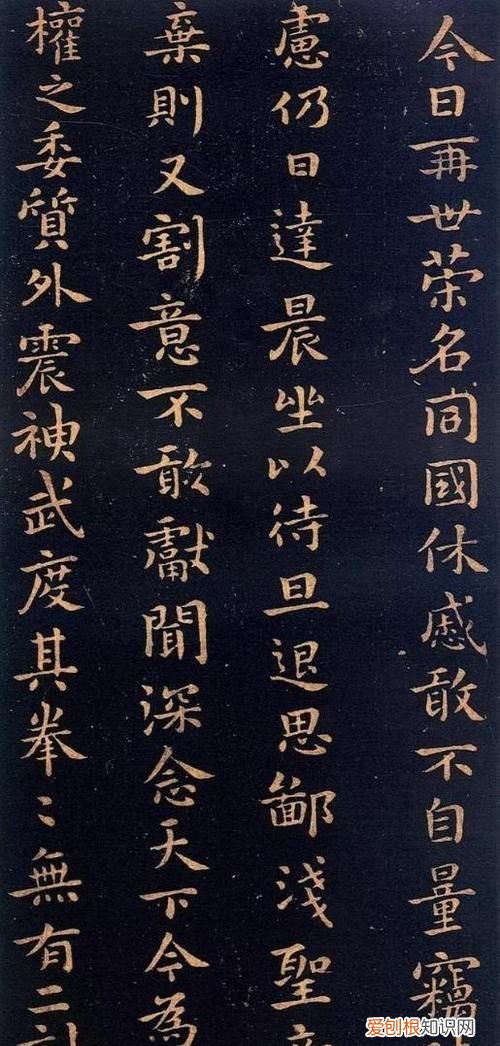 今日再世荣名同國休慼敢不自量竊
慮仍日達晨坐以待旦退思鄙淺聖
棄則又割意不敢獻聞深念天下今為
權之委質外震神武度其拳〻無有二
爱刨根知识网